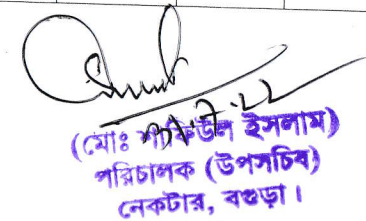 ৩১.৭.২২
(মোঃ শাফিউল ইসলাম)
পরিচালক (উপসচিব)
নেকটার, বগুড়া।